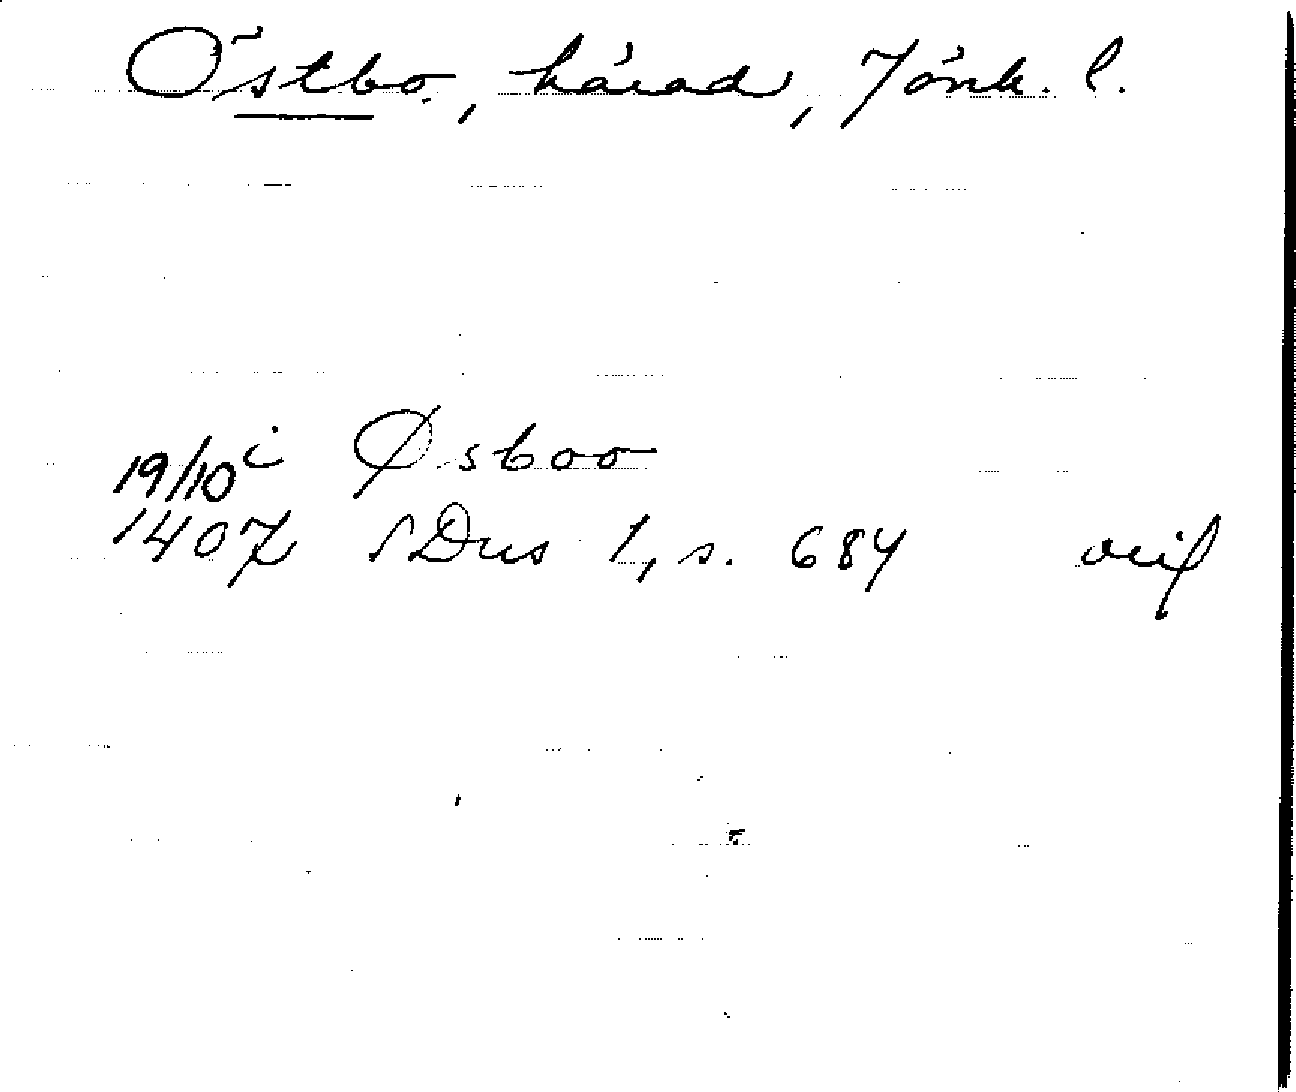 Östbo, härad, Jönk. l.
19/10 i Øsboo
1407 SDns 1, s. 684 avskr